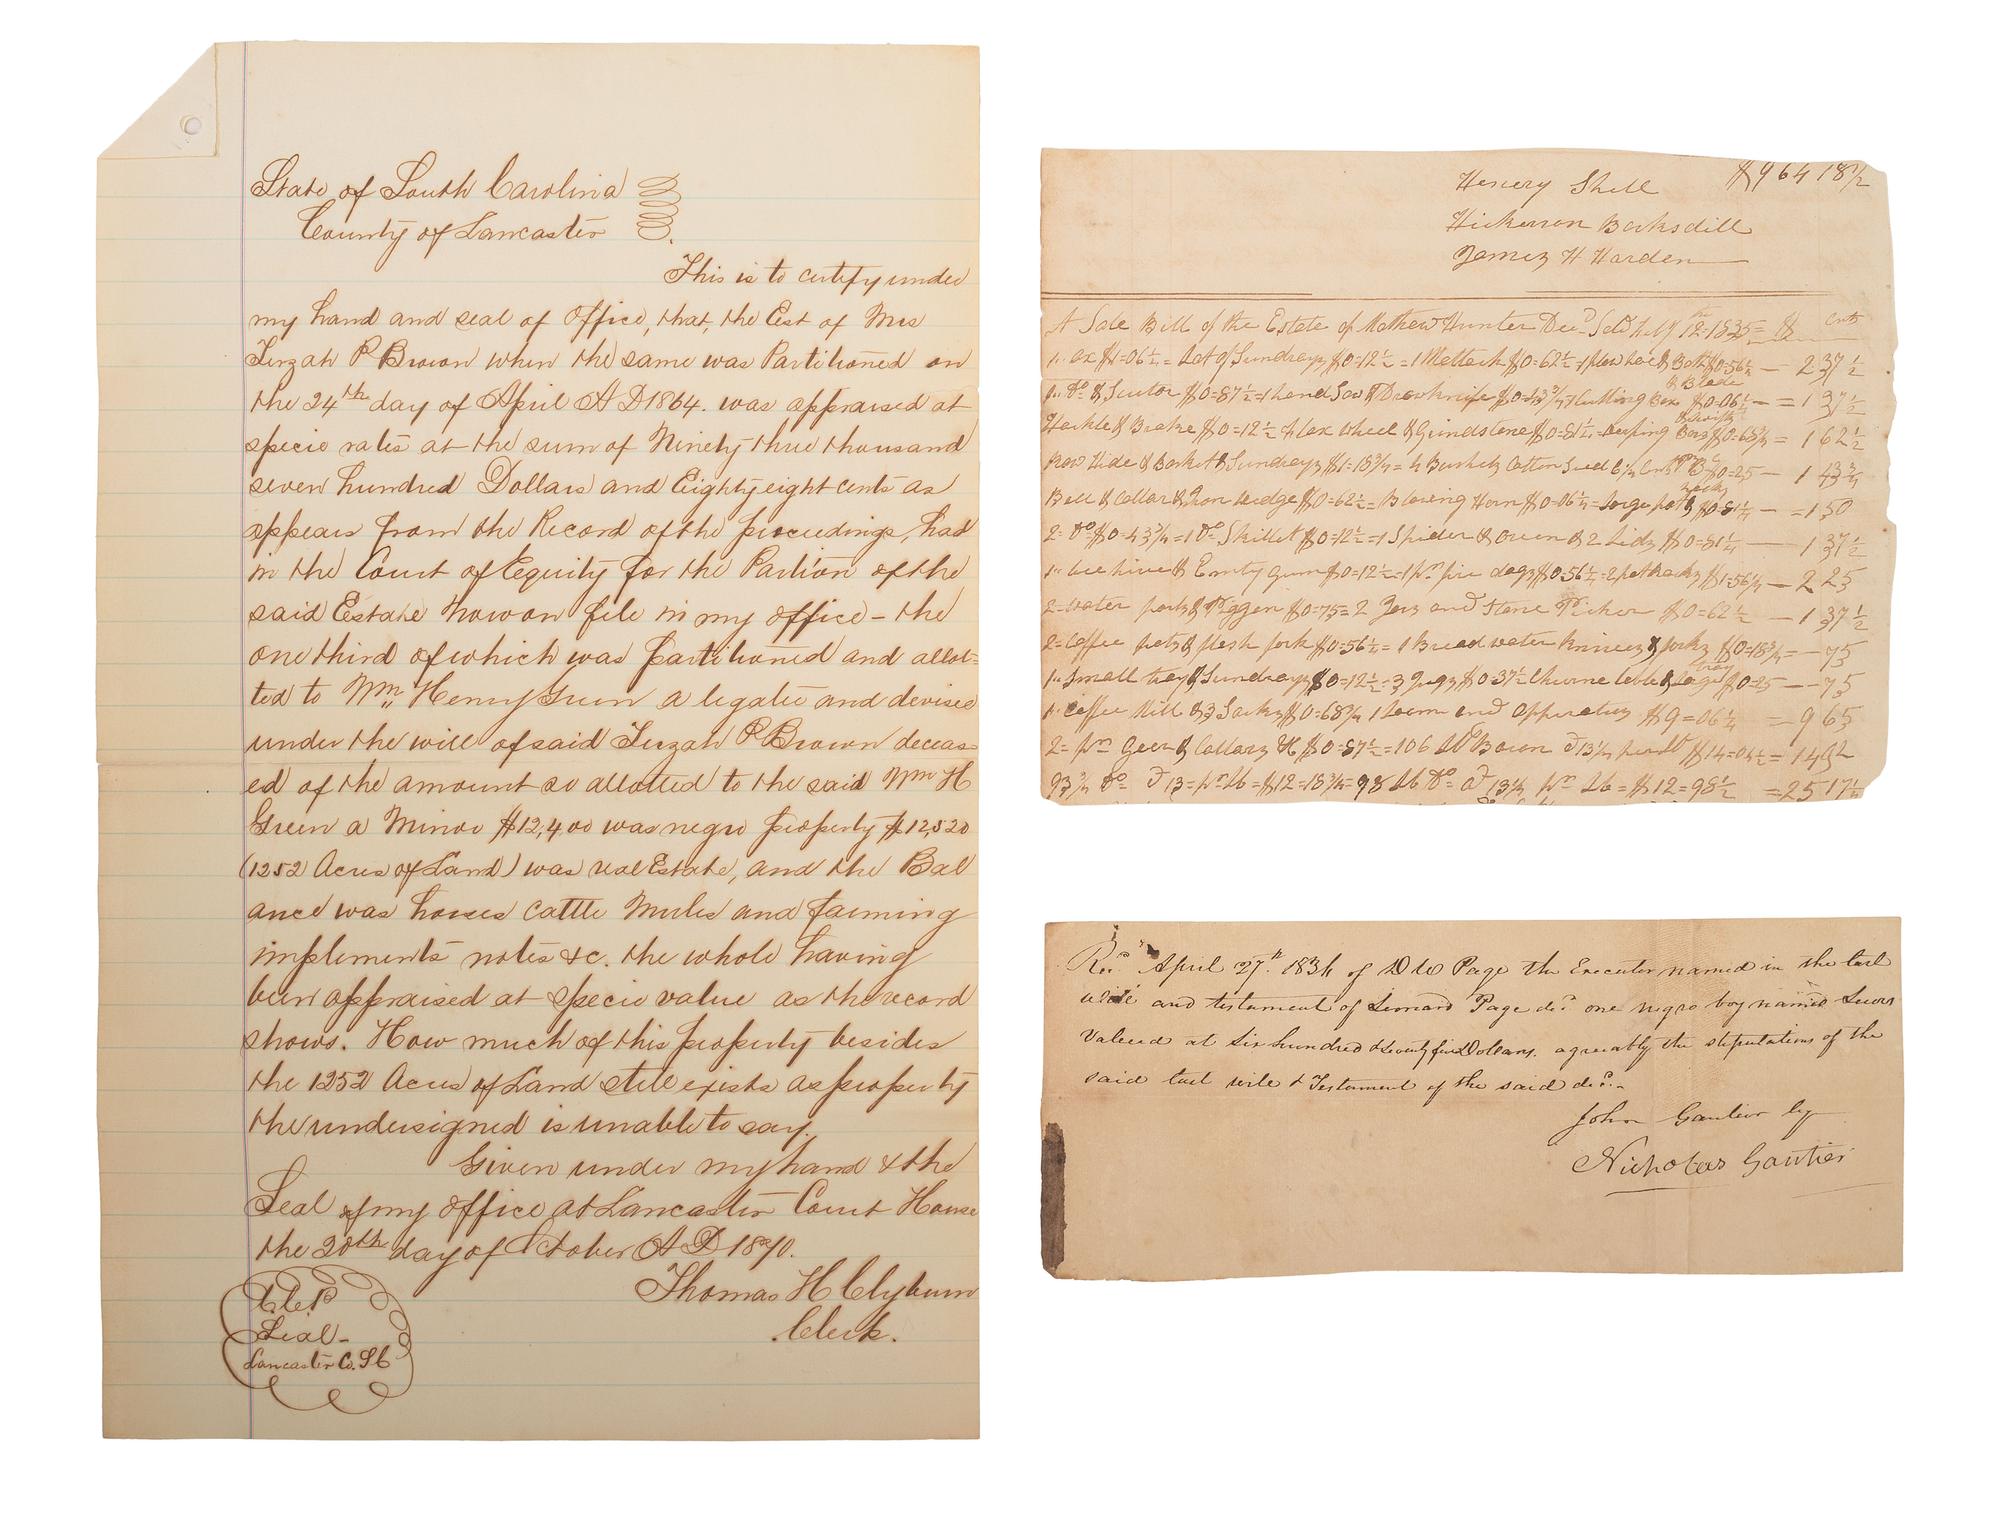 State of South Carolina
County of Lancaster
This is to certify under
my hand and seal of Office, that, the Est of Mrs
Tirzah P Brown when the same was Partitioned on
the 24th day of April A D 1864. was appraised at
specie rates at the sum of Ninety three thousand
seven hundred Dollars and Eighty eight cents as
appears from the Record of the proceedings, had
in the Court of Equity for the Partion of the
said Estate now on file in my office - the
one third of which was partitioned and allot=
ted to Wm Henry Green a legatee and devisee
under the will of said Tirzah P Brown deceas=
ed of the amount so allotted to the said Wm H
Green a Minor $12,400 was negro property $12,520
(1252 Acres of Land) was real Estate, and the Bal
ance was horses cattle Mules and farming
implements notes &c. the whole having
been appraised at specie value as the record
shows. How much of this property besides
the 1252 Acres of Land still exists as property
the undersigned is unable to say.
Given under my hand & the
Seal of my office at Lancaster Court House
the 20th day of October A D 1890.
Thomas H Clyburn
Clerk.
C.C.P
Seal-
Lancaster Co. SC
$964 18½
Henery Shell
Hickerson Barksdill
James H Harden
A Sale Bill of the Estate of Mathew Hunter Decd Sold 12th 1835 = $ Cnts
1 ox $1=06¼ = Lot of Sundrays $0=12½ = 1 Mattock $0=62½ = 1 plow hoe & Bolt $0=56¼ — 2 37½
1 Do & Scutor $0=87½ = 1 hand Saw & Drawknife $0=43¾ = 1 Cutting Box & Blade $0=06¼ — = 1 37½
Hackle & Brake $0=12½ flax wheel & Grindstone $0=81¼ = $0=68¾ = 1 62½
Raw Hide & Basket & Sundrays $1=18¾ = 4 Bushels Cotton Seed 6¼ Cnts Pr B $0=25 — 1 43¾
Bell & Collar & Iron wedge $0=62½ = Blowing Horn $0=06¼ = Large pot & $0=81¼ — = 1 50
2 Do $0=43¾ = 1 Do Skillet $0=12½ = 1 Spider & oven & 2 Lids $0=81¼ — 1 37½
1 bee hive & Emty gum $0=12½ = 1 pr fire dogs $0=56¼ = 2 pot racks $1=56¼ — 2 25
2 water pails & Piggen $0=75 = 2 Jars and Stone Picher $0=62½ — 1 37½
2 Coffee pots & flesh fork $0=56¼ = 1 Bread water Knives & forks $0=18¾ = — 75
1 Small tray & Sundrays $0=12½ = 3 Jugs $0=37½ Churne table & Large tray $0=25 — — 75
1 Coffee Mill & 3 Sacks $0=68¾ 1 Loom and Apparatus $9=06¼ = 9 65
2 pr Geer & Collars $0=87½ = 106 lb Bacon 13¼ per lb $14=04½ = 14 92
93¾ Do 13 pr lb = $12=18¾ = 98 lb Do 13¼ pr lb = $12=98½ = 25 17¼
Recd April 27th 1834 of D W Page the Executor named in the last
will and testament of Leonard Page decd one negro boy named Lewis
Valued at Six hundred & Seventy five Dollars. agreeably the stipulations of the
said last will & Testament of the said decd.
John Gautier by
Nicholas Gautier